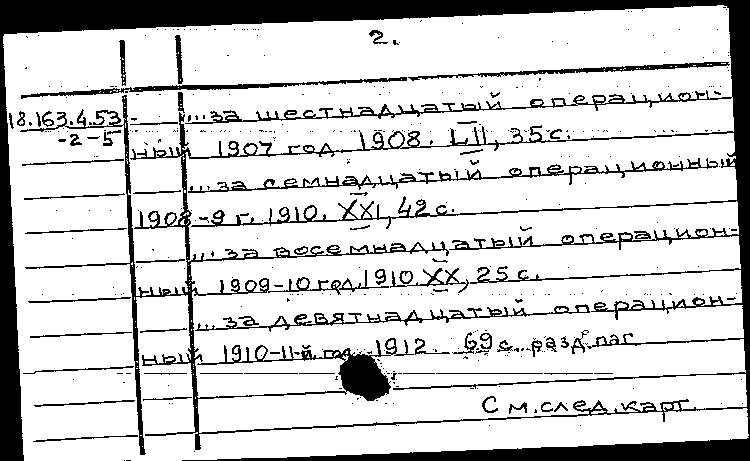 2.
18.163.4.53 - ...за шестнадцатый операцион-
-2-5
ный 1907 год. 1908. LII, 35 с.
...за семнадцатый операционный
1908-9 г. 1910. XXI, 42 с.
...за восемнадцатый операцион-
ный 1909-10 год. 1910. XX, 25 с.
...за девятнадцатый операцион-
ный 1910-11-й год. 1912. 69 с. разд. паг.
См. след. карт.